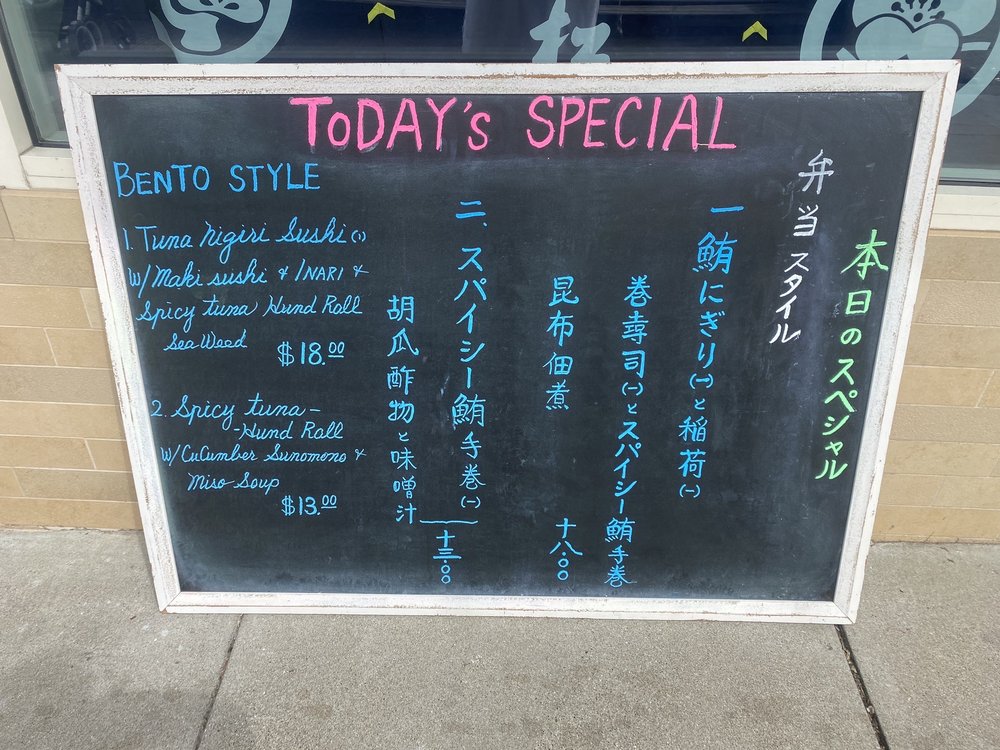 TODAY's SPECIAL
BENTO STYLE
1. Tuna nigiri Sushi (1)
W/ Maki sushi & INARI &
Spicy tuna Hund Roll
Sea Weed
$18.00
2. Spicy tuna -
- Hund Roll
W/ CuCumber Sunomono &
Miso Soup
$13.00
本日のスペシャル
弁当スタイル
一 鮪にぎり(一)と稲荷(一)
巻寿司(一)とスパイシー鮪手巻
昆布佃煮 十八.00
二、スパイシー鮪手巻(一)
胡瓜酢物と味噌汁
十三.00
松